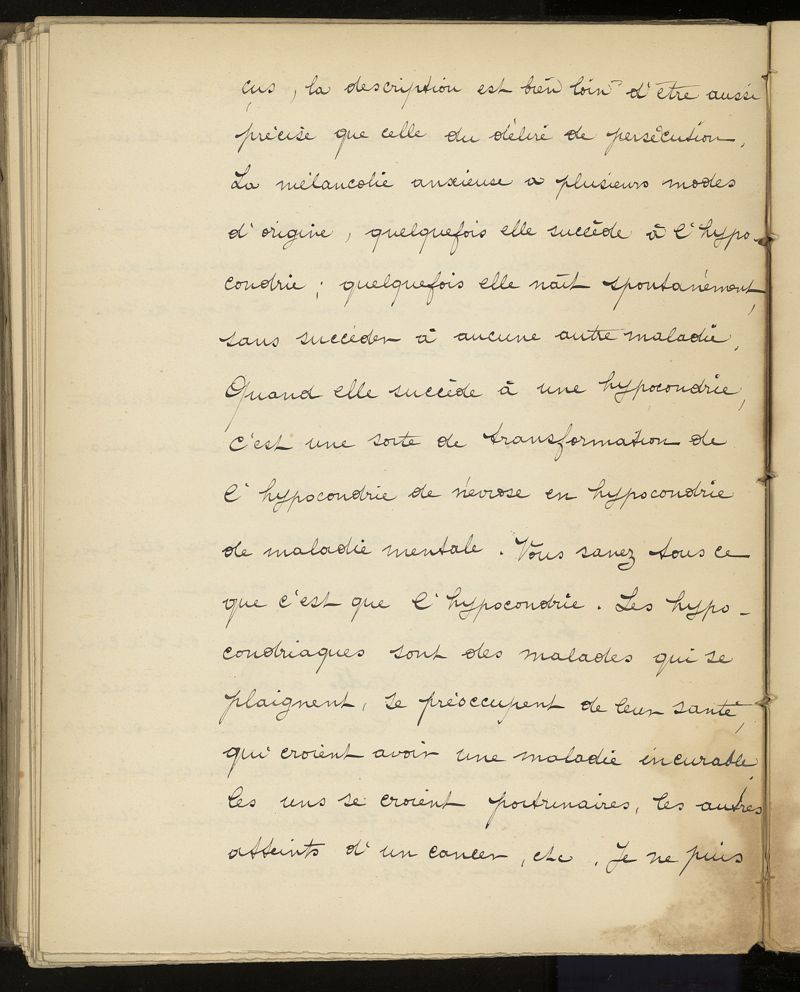 çus, la description est bien loin d'être aussi
précise que celle du délire de persécution.
La mélancolie anxieuse a plusieurs modes
d'origine, quelquefois elle succède à l'hypo-
condrie ; quelquefois elle naît spontanément,
sans succéder à aucune autre maladie.
Quand elle succède à une hypocondrie,
c'est une sorte de transformation de
l'hypocondrie de névrose en hypocondrie
de maladie mentale. Vous savez tous ce
que c'est que l'hypocondrie. Les hypo-
condriaques sont des malades qui se
plaignent, se préoccupent de leur santé,
qui croient avoir une maladie incurable,
les uns se croient poitrinaires, les autres
atteints d'un cancer, etc. Je ne puis